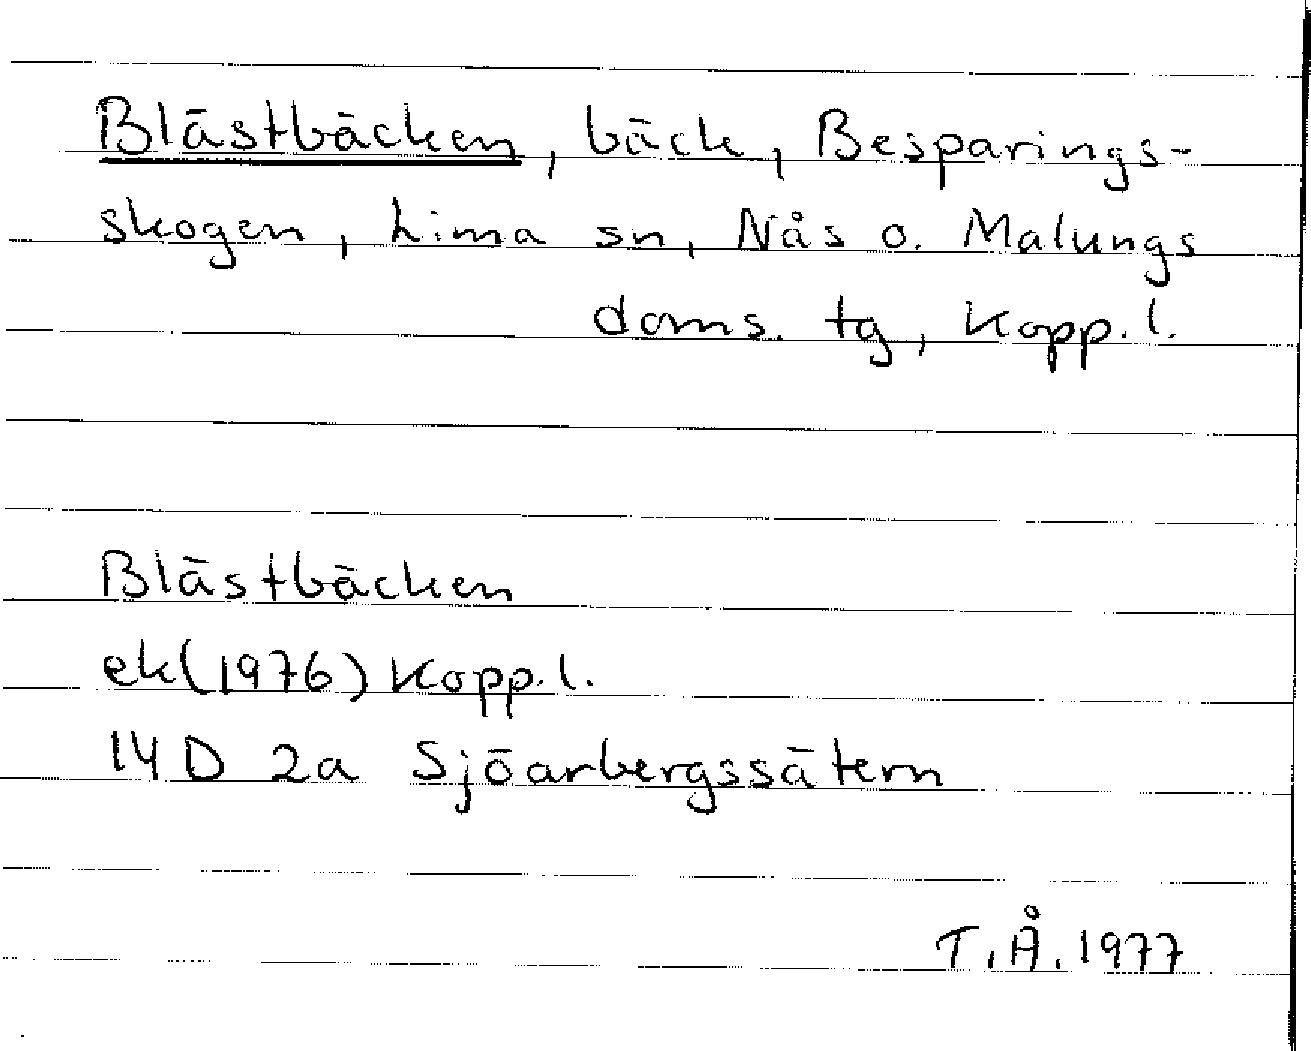 Blästbäcken, bäck, Besparings-
skogen, Lima sn, Nås o. Malungs
doms. tg, Kopp. l.
Blästbäcken
ek(1976) Kopp. l.
14 D 2a Sjöarbergssätern
T.Å. 1977